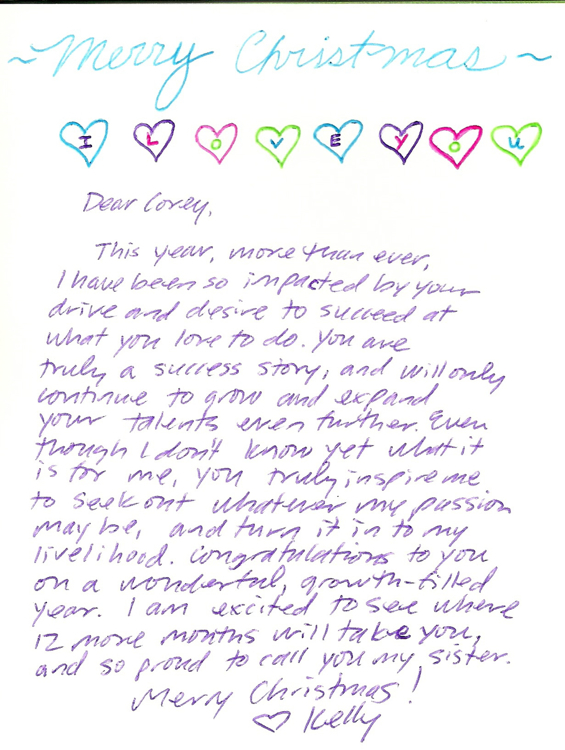 ~Merry Christmas~
I L O V E Y O U
Dear Corey,
This year, more than ever,
I have been so impacted by your
drive and desire to succeed at
what you love to do. You are
truly a success story, and will only
continue to grow and expand
your talents even further. Even
though I don't know yet what it
is for me, you truly inspire me
to seek out whatever my passion
may be, and turn it in to my
livelihood. Congratulations to you
on a wonderful, growth-filled
year. I am excited to see where
12 more months will take you,
and so proud to call you my sister.
Merry Christmas!
♡ Kelly